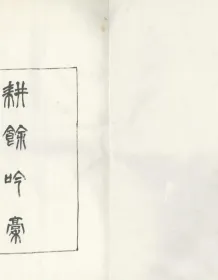 耕餘吟稾